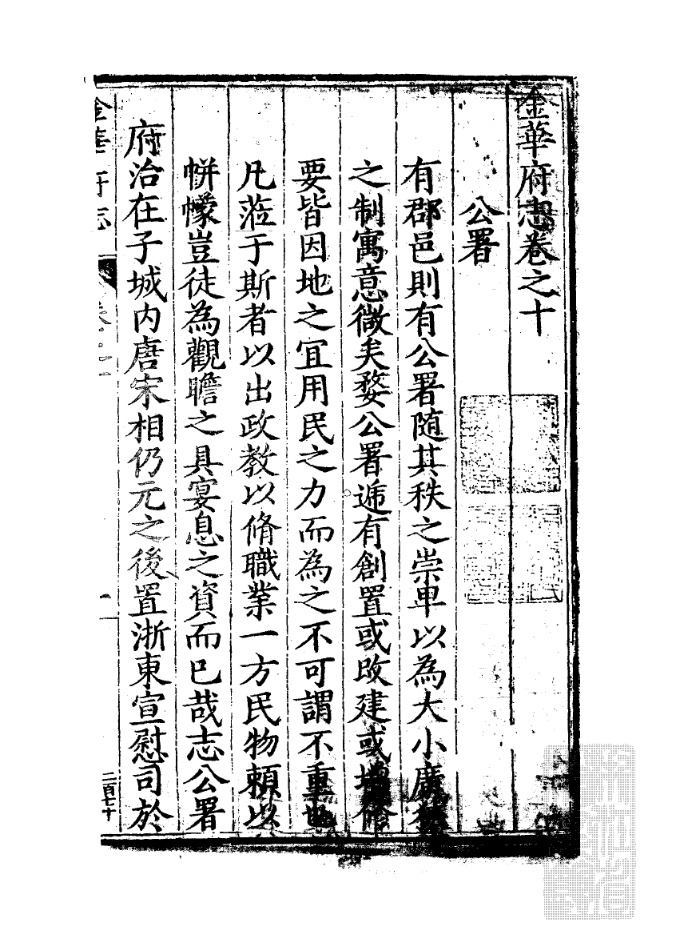 金華府志卷之十
公署
有郡邑則有公署随其秩之崇卑以為大小廣狹
之制寓意微矣婺公署遞有創置或改建或增脩
要皆因地之宜用民之力而為之不可謂不重也
凡蒞于斯者以出政教以脩職業一方民物頼以
帡幪豈徒為觀瞻之具宴息之資而已哉志公署
府治在子城内唐宋相仍元之後置浙東宣慰司於
金華府志
卷之十
一
二百七十